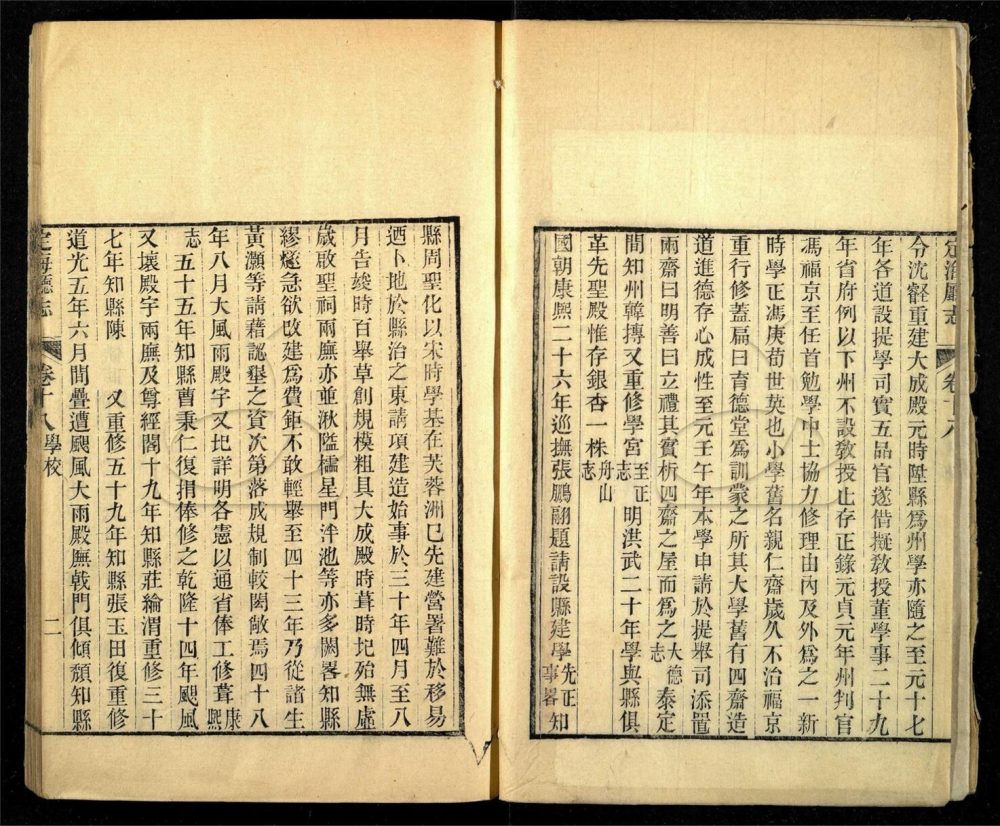 定海廳志 卷十八
令沈䜭重建大成殿元時陞縣爲州學亦隨之至元十七
年各道設提學司實五品官遂借擬敎授董學事二十九
年省府例以下州不設敎授止存正錄元貞元年州判官
馮福京至任首勉學中士協力修理由內及外爲之一新
時學正馮庚荀世英也小學舊名親仁齋歲久不治福京
重行修蓋扁曰育德堂爲訓蒙之所其大學舊有四齋造
道進德存心成性至元壬午年本學申請於提舉司添置
兩齋曰明善曰立禮其實析四齋之屋而爲之大德志泰定
間知州韓摶又重修學宮至正志明洪武二十年學與縣俱
革先聖殿惟存銀杏一株舟山志
國朝康熙二十六年巡撫張鵬翮題請設縣建學先正事畧知
縣周聖化以宋時學基在芙蓉洲已先建營署難於移易
迺卜地於縣治之東請項建造始事於三十年四月至八
月告竣時百舉草創規模粗具大成殿時葺時圮殆無虛
歲啟聖祠兩廡亦並湫隘櫺星門泮池等亦多闕畧知縣
繆燧急欲改建爲費鉅不敢輕舉至四十三年乃從諸生
黃灝等請藉認墾之資次第落成規制較閎敞焉四十八
年八月大風雨殿宇又圮詳明各憲以通省俸工修葺康熙
志五十五年知縣曹秉仁復捐俸修之乾隆十四年颶風
又壞殿宇兩廡及尊經閣十九年知縣莊綸渭重修三十
七年知縣陳 又重修五十九年知縣張玉田復重修
道光五年六月間疊遭颶風大雨殿廡戟門俱傾頹知縣
定海廳志 卷十八 學校 二